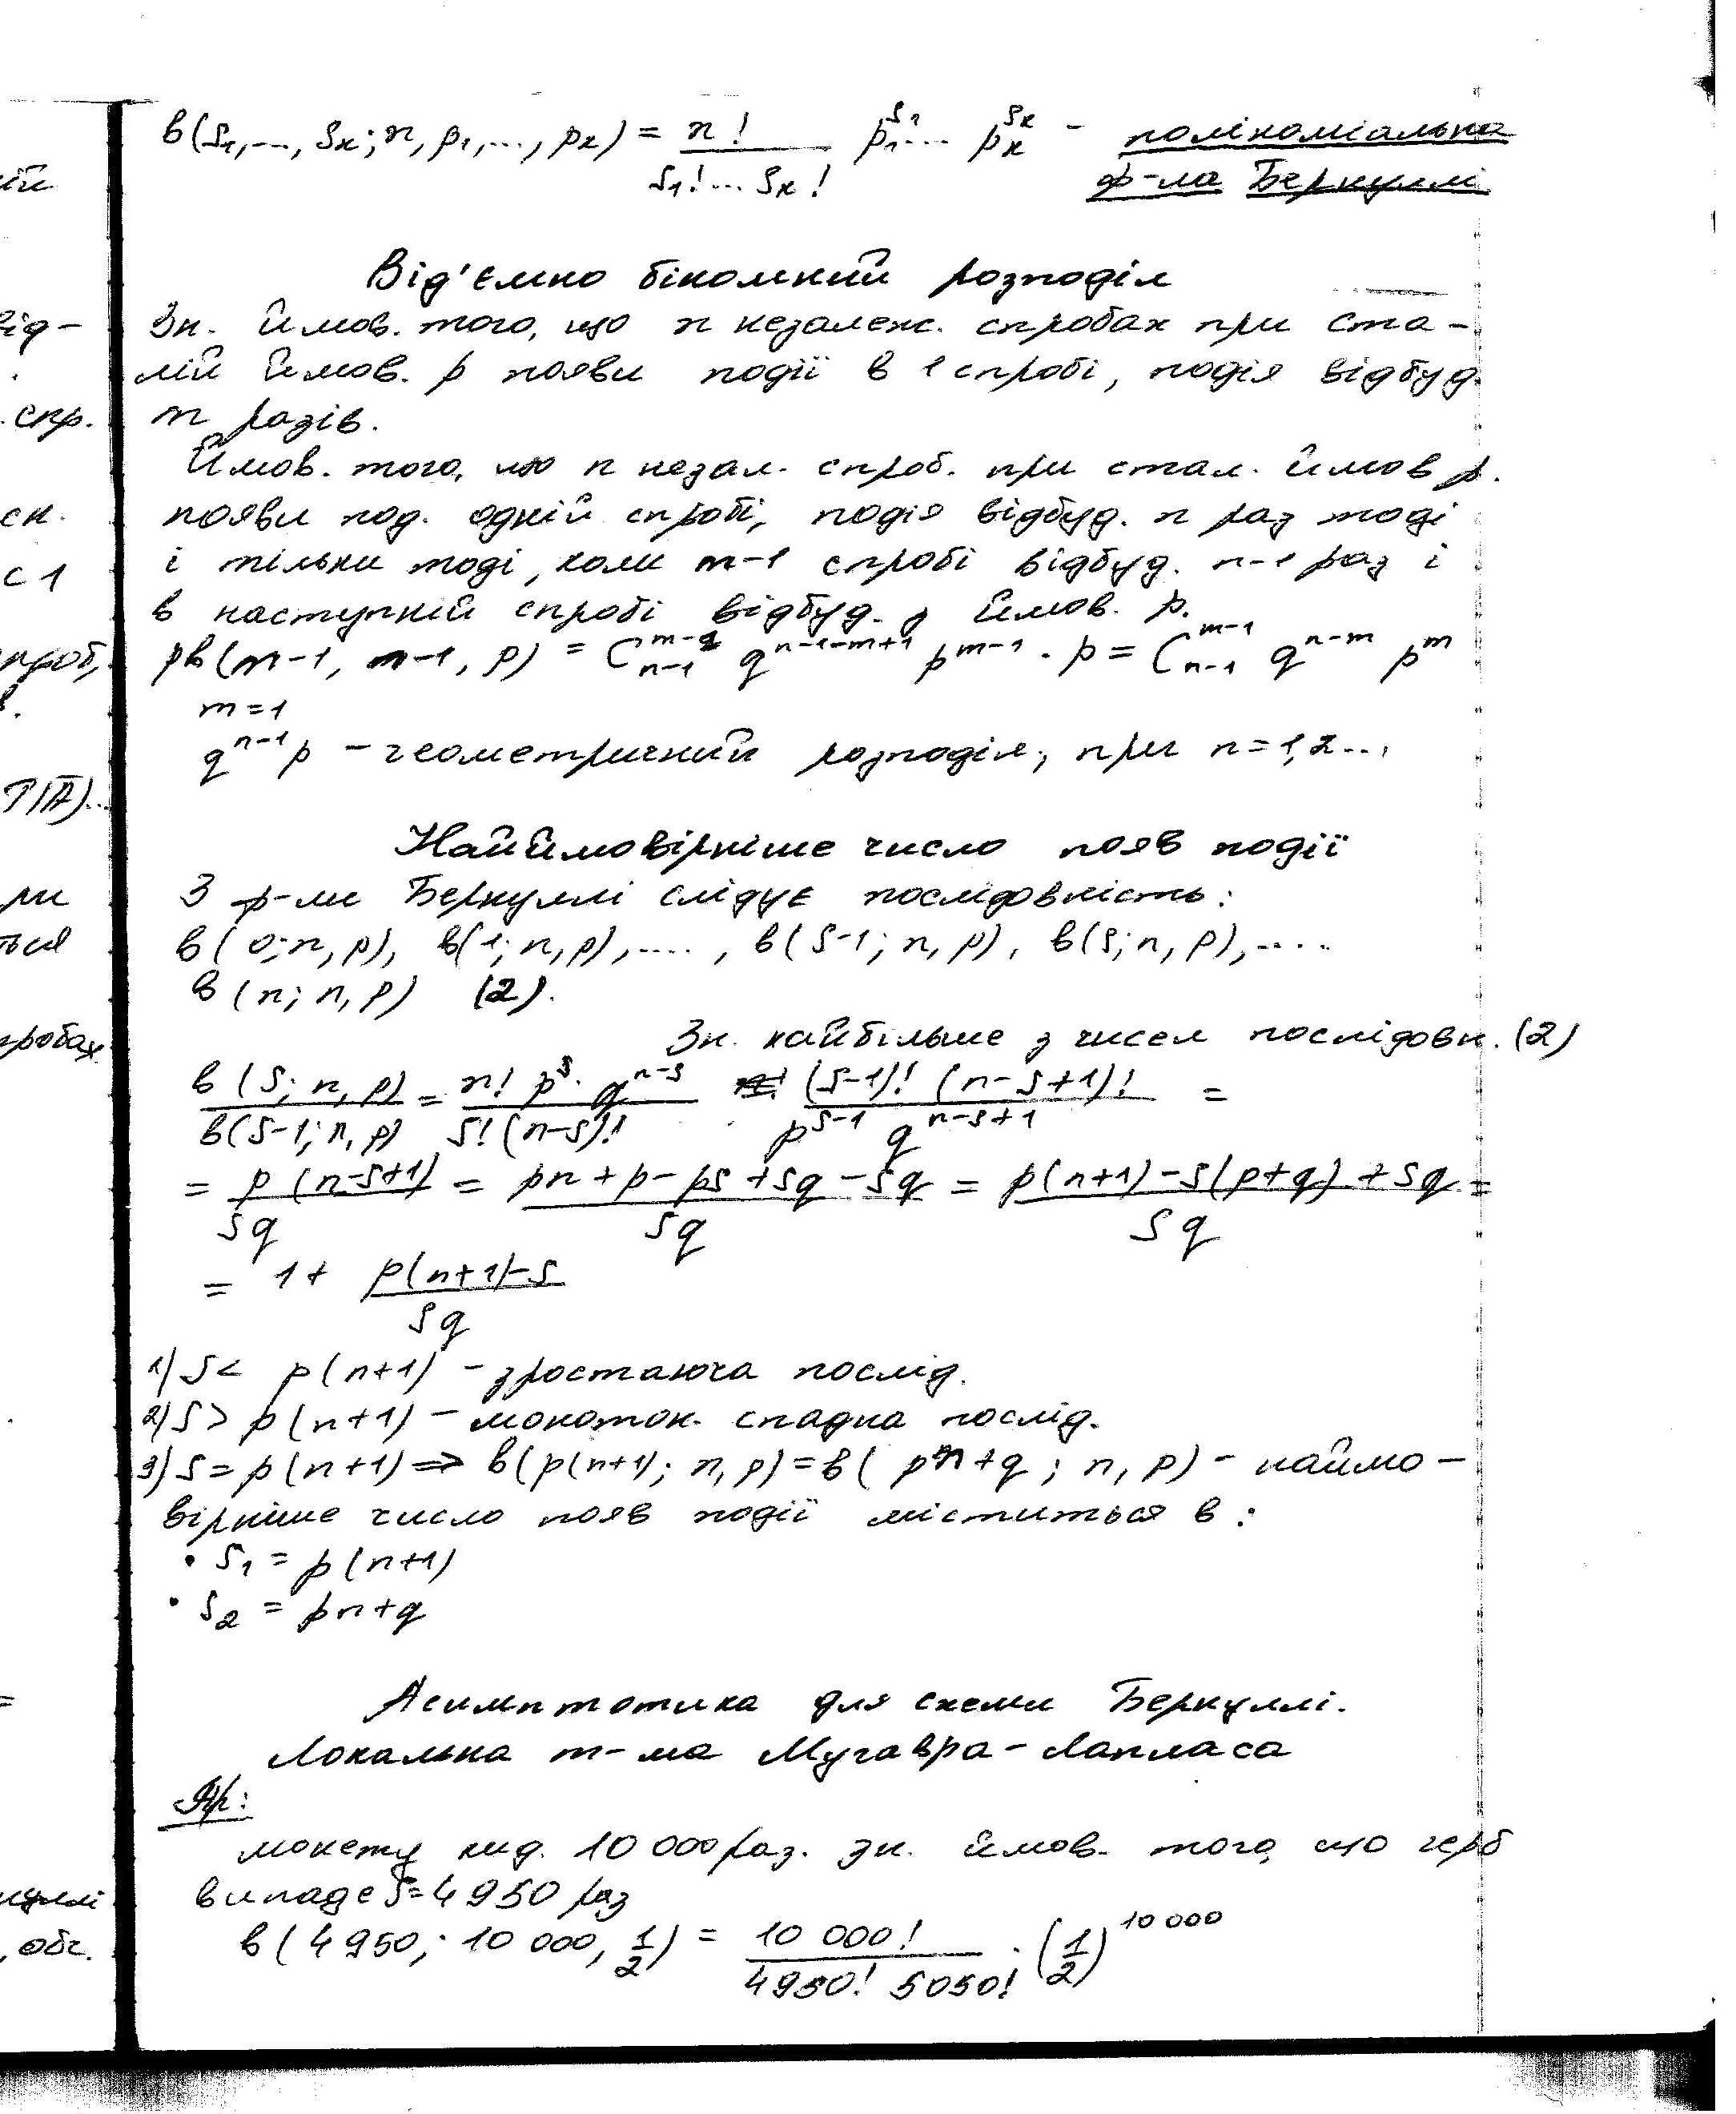 в(s₁,..., sₖ; n, p₁,..., pₖ) = n! / (s₁!...sₖ!) p₁^s₁... pₖ^sₖ - поліноміальна
ф-ла Бернуллі
Від'ємно біномний розподіл
Зн. ймов. того, що n незалеж. спробах при ста-
лій ймов. p появи події в 1 спробі, подія відбуд.
m разів.
Ймов. того, що n незал. спроб. при стал. ймов p.
появи под. одній спробі, подія відбуд. n раз тоді
і тільки тоді, коли m-1 спробі відбуд. n-1 раз і
в наступній спробі відбуд. з ймов. p.
pв(m-1, m-1, p) = C_{n-1}^{m-1} q^{n-1-m+1} p^{m-1} · p = C_{n-1}^{m-1} q^{n-m} p^m
m=1
q^{n-1} p - геометричний розподіл, при n=1,2...,
Найймовірніше число появ події
З ф-ли Бернуллі слідує послідовність:
в(0;n,p), в(1;n,p),...., в(s-1;n,p), в(s;n,p),....
в(n;n,p) (2).
Зн. найбільше з чисел послідовн. (2)
в(s;n,p) / в(s-1;n,p) = n! p^s · q^{n-s} / s!(n-s)! · (s-1)! (n-s+1)! / p^{s-1} q^{n-s+1} =
= p(n-s+1) / sq = pn+p-ps+sq-sq / sq = p(n+1)-s(p+q)+sq / sq =
= 1+ p(n+1)-s / sq
1) s< p(n+1) - зростаюча послід.
2) s> p(n+1) - монотон. спадна послід.
3) s= p(n+1) => в(p(n+1); n,p) = в(pn+q; n,p) - наймо-
вірніше число появ події міститься в:
• s₁ = p(n+1)
• s₂ = pn+q
Асимптотика для схеми Бернуллі.
Локальна т-ма Мугавра-Лапласа
Пр:
монету кид. 10 000 раз. Зн. ймов. того, що герб
випаде s=4950 раз
в(4950; 10 000, 1/2) = 10 000! / 4950! 5050! · (1/2)^{10 000}